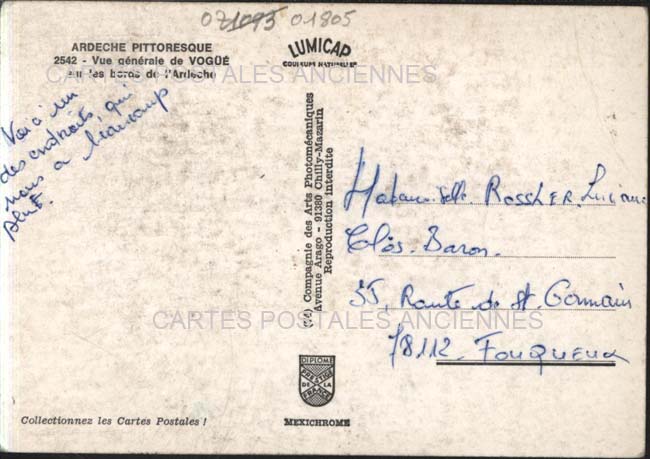 071095 01805
ARDECHE PITTORESQUE
2542 - Vue générale de VOGÜÉ
sur les bords de l'Ardeche
LUMICAP
COULEURS NATURELLES
CARTES POSTALES ANCIENNES
Voici un
des endroits, qui
nous a beaucoup
plut.
Compagnie des Arts Photomécaniques
Avenue Arago - 91380 Chilly-Mazarin
Reproduction interdite
Mademoiselle Rossher Luciane
Clos. Baron.
55, Route de St. Germain
78112. FOUQUEUX
CARTES POSTALES ANCIENNES
DIPLOME
PRESTIGE
DE LA
FRANCE
MEXICHROME
Collectionnez les Cartes Postales !